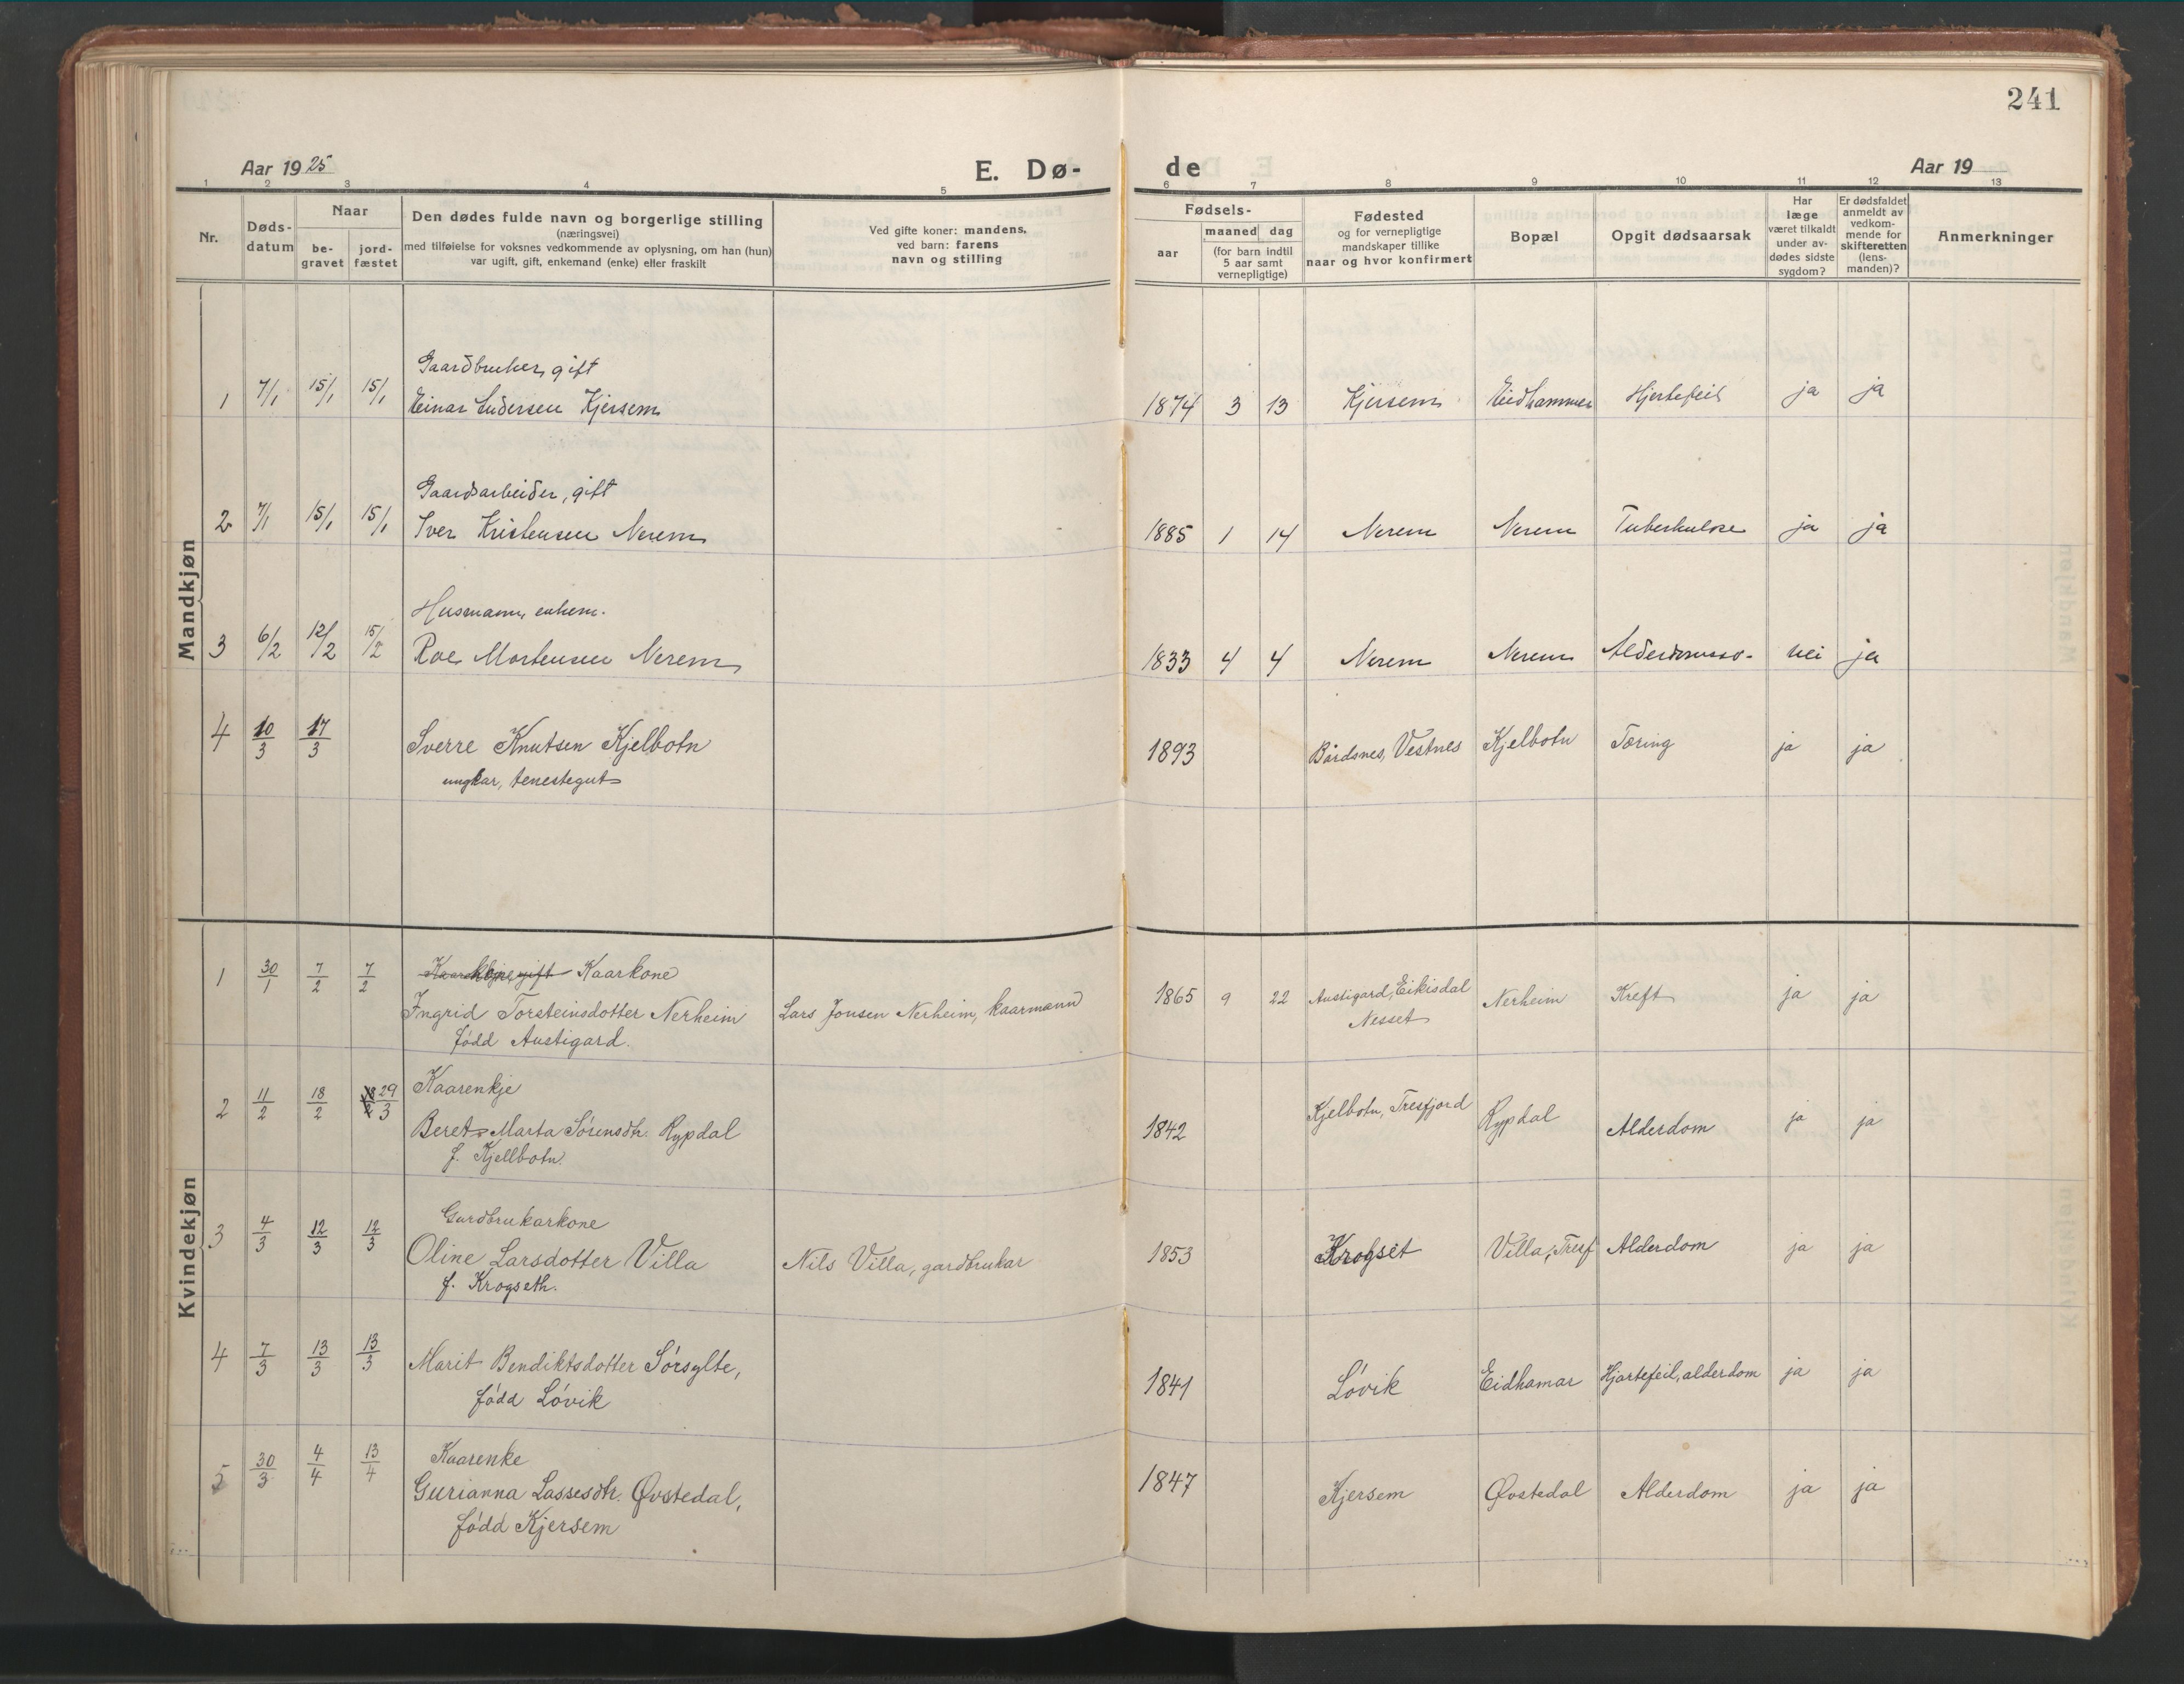 241
Aar 1925
E. Dø-
de
Aar 19
1 2 3 4 5 6 7 8 9 10 11 12 13
Nr.
Døds-
datum
Naar
be-
gravet
jord-
fæstet
Den dødes fulde navn og borgerlige stilling
(næringsvei)
med tilføielse for voksnes vedkommende av oplysning, om han (hun)
var ugift, gift, enkemand (enke) eller fraskilt
Ved gifte koner: mandens,
ved barn: farens
navn og stilling
Fødsels-
aar
maaned dag
(for barn indtil
5 aar samt
vernepligtige)
Fødested
og for vernepligtige
mandskaper tillike
naar og hvor konfirmert
Bopæl
Opgit dødsaarsak
Har
læge
været tilkaldt
under av-
dødes sidste
sygdom?
Er dødsfaldet
anmeldt av
vedkom-
mende for
skifteretten
(lens-
manden)?
Anmerkninger
Mandkjøn
Gaardbruker, gift
1 7/1 15/1 15/1 Einar Kjersem 1874 3 13 Kjersem Eidhammer Hjertefeil ja ja
Gaardsarbeider, gift
2 7/1 15/1 15/1 Iver Kristensen Nerem 1885 1 14 Nerem Nerem Tuberkulose ja ja
Husmann, enkem.
3 6/2 12/2 15/2 Roe Mortensen Nerem 1833 4 4 Nerem Nerem nei ja
4 10/3 17/3 Sverre Knutsen Kjelbotn 1893 Bårdsnes, Vestnes Kjelbotn Tæring ja ja
ungkar, tenestegut
Kvindekjøn
1 30/1 7/2 7/2 Kaarkone
Ingrid Torsteinsdotter Nerheim Lars Jonsen Nerheim, kaarmann 1865 9 22 Austigard, Eikisdal Nerheim Kreft ja ja
Nesset
född Austigard.
Kaarenkje
2 11/2 18/2 29/3 Beret Marta Sörensdtr. Rypdal 1842 Kjelbotn, Tresfjord Rypdal Alderdom ja ja
f. Kjellbotn.
Gardbrukarkone
3 4/3 12/3 12/3 Oline Larsdotter Villa Nils Villa, gardbrukar 1853 Krogset Villa, Tresf Alderdom ja ja
f. Krogseth.
4 7/3 13/3 13/3 Marit Bendiktsdotter Sörsylte, 1841 Lövik Eidhamar Hjartefeil, alderdom ja ja
född Lövik
Kaarenke
5 30/3 4/4 13/4 Gurianna Lassesdtr. Øvstedal, 1847 Kjersem Øvstedal Alderdom ja ja
född Kjersem